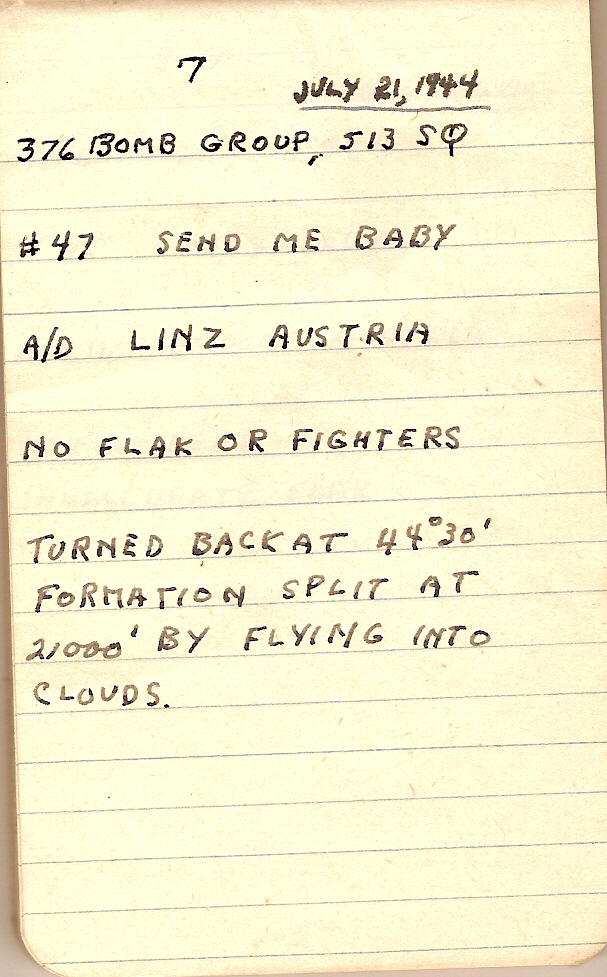 7
JULY 21, 1944
376 BOMB GROUP, 513 SQ
#47 SEND ME BABY
A/D LINZ AUSTRIA
NO FLAK OR FIGHTERS
TURNED BACK AT 44°30'
FORMATION SPLIT AT
21000' BY FLYING INTO
CLOUDS.